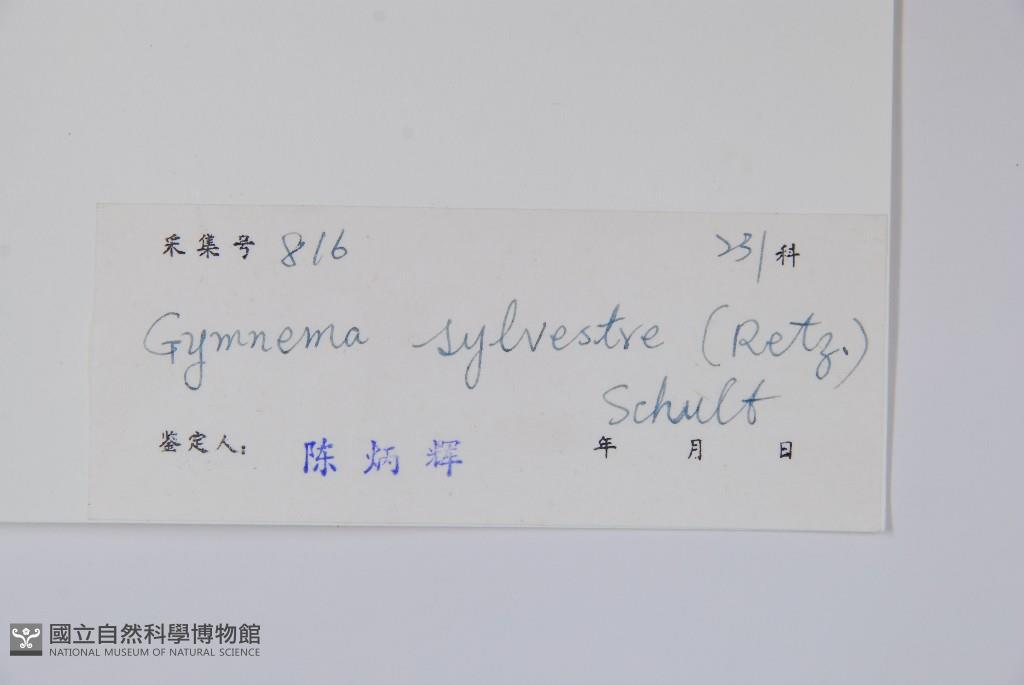 采集号 816 231科
Gymnema sylvestre (Retz.)
Schult
鉴定人: 陈炳辉 年 月 日
國立自然科學博物館
NATIONAL MUSEUM OF NATURAL SCIENCE